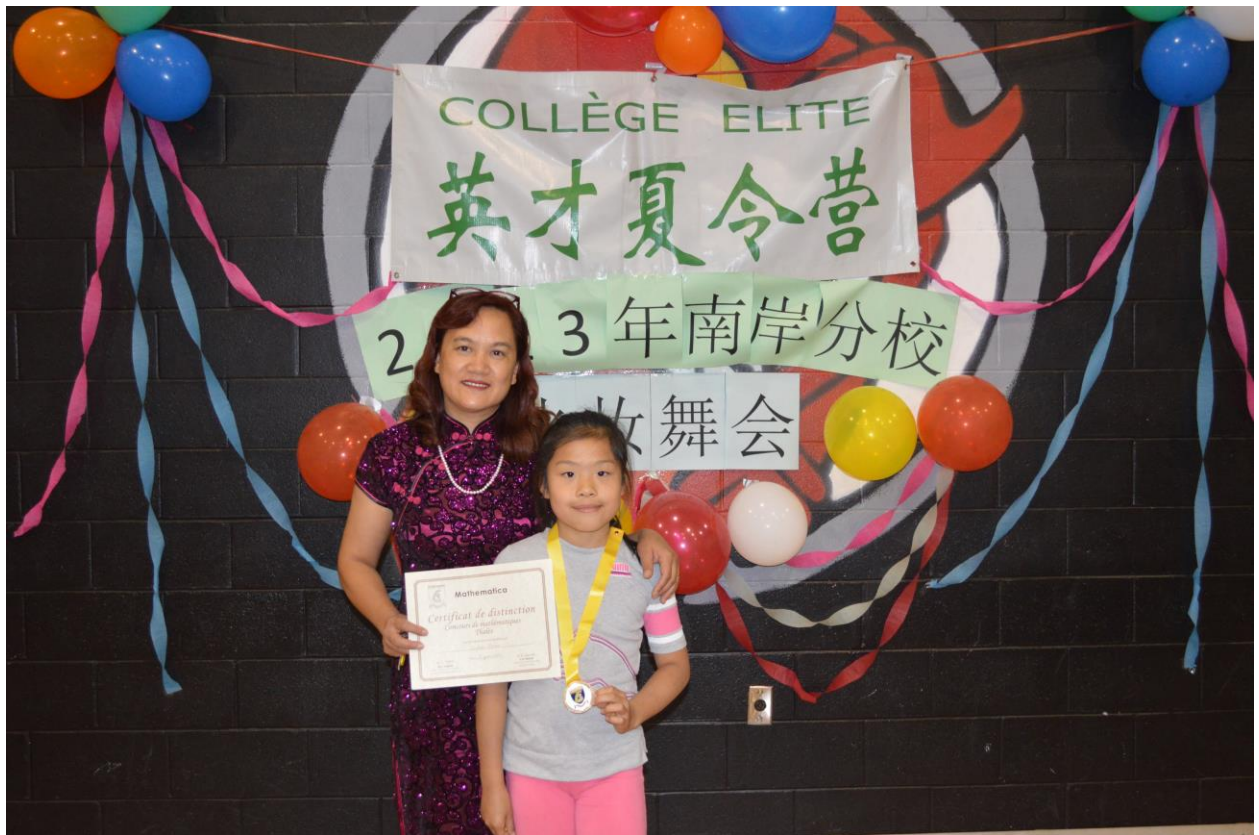 COLLÈGE ELITE
英才夏令营
2 3年南岸分校
妆舞会
Mathematica
Certificat de distinction
Concours de mathématiques
Thalès